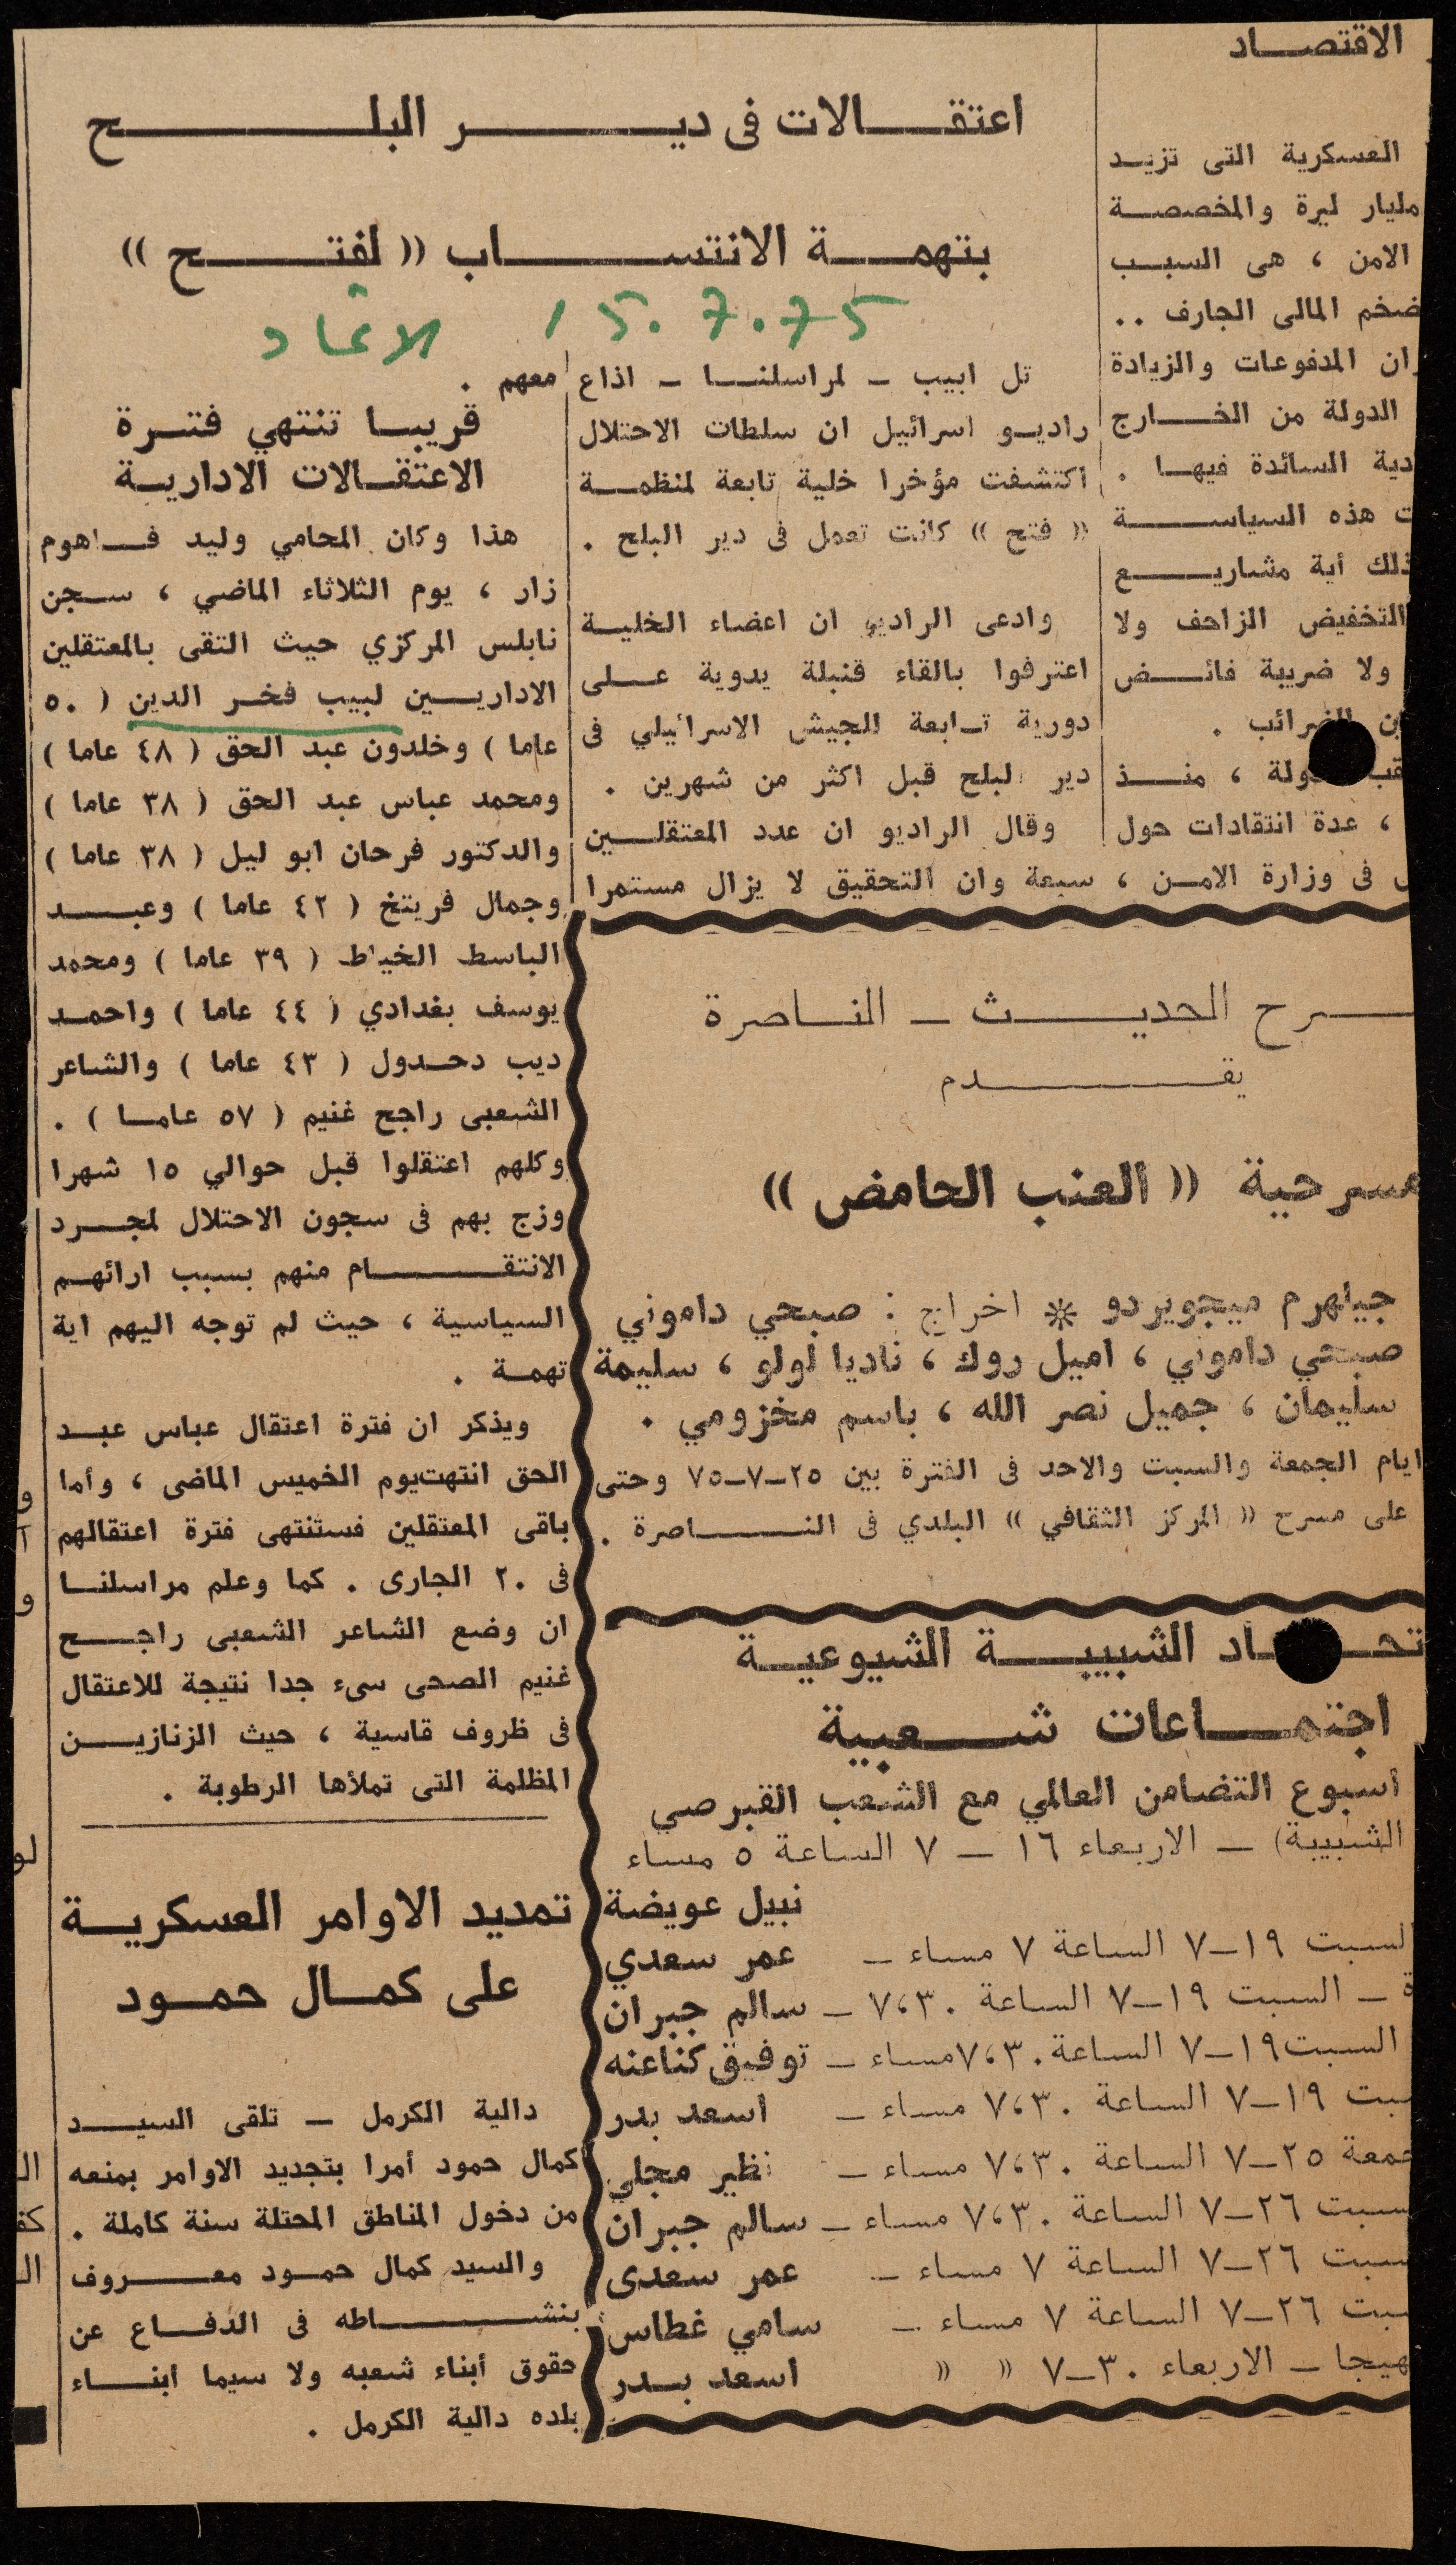 الاقتصـــاد
العسكرية التى تزيــد
مليار ليرة والمخصصــة
الامن ، هى السبــب
ضخم المالى الجارف ..
ان المدفوعات والزيادة
الدولة من الخــارج
دية السائدة فيهــا .
ت هذه السياســـة
ذلك أية مشاريـــع
التخفيض الزاحف ولا
ولا ضريبة فائــض
الضرائب .
ولة ، منــذ
، عدة انتقادات حول
فى وزارة الامــن ،
اعتقـــالات فى ديـــــر البلـــــح
بتهمـــة الانتســـــاب (( لفتـــــح ))
15.7.75
الاتحاد
تل ابيب ـ لمراسلنــا ـ اذاع
راديــو اسرائيل ان سلطات الاحتلال
اكتشفت مؤخرا خلية تابعة لمنظمــة
(( فتح )) كانت تعمل فى دير البلح .
وادعى الراديو ان اعضاء الخليــة
اعترفوا بالقاء قنبلة يدوية علــى
دورية تــابعة للجيش الاسرائيلي فى
دير البلح قبل اكثر من شهرين .
وقال الراديو ان عدد المعتقلــين
سبعة وان التحقيق لا يزال مستمرا
معهم .
قريبــا تنتهي فتــرة
الاعتقــالات الاداريــة
هذا وكان المحامي وليد فــاهوم
زار ، يوم الثلاثاء الماضي ، سـجن
نابلس المركزي حيث التقى بالمعتقلين
الاداريــين لبيب فخــر الدين ( ٥٠
عاما ) وخلدون عبد الحق ( ٤٨ عاما )
ومحمد عباس عبد الحق ( ٣٨ عاما )
والدكتور فرحان ابو ليل ( ٣٨ عاما )
وجمال فريتخ ( ٤٢ عاما ) وعبــد
الباسط الخياط ( ٣٩ عاما ) ومحمد
يوسف بغدادي ( ٤٤ عاما ) واحمـد
ديب دحــدول ( ٤٣ عاما ) والشاعر
الشعبى راجح غنيم ( ٥٧ عامــا ) .
وكلهم اعتقلوا قبل حوالي ١٥ شهرا
وزج بهم فى سجون الاحتلال لمجــرد
الانتقـــــام منهم بسبب ارائهــم
السياسية ، حيث لم توجه اليهم اية
تهمـة .
ويذكر ان فترة اعتقال عباس عبـد
الحق انتهت يوم الخميس الماضى ، وأما
باقى المعتقلين فستنتهى فترة اعتقالهم
فى ٢٠ الجارى . كما وعلم مراسلنــا
ان وضع الشاعر الشعبى راجـــح
غنيم الصحى سىء جدا نتيجة للاعتقال
فى ظروف قاسية ، حيث الزنازيــن
المظلمة التى تملأها الرطوبة .
تمديد الاوامر العسكريــة
على كمــال حمــود
دالية الكرمل ـ تلقى السيــد
كمال حمود أمرا بتجديد الاوامر بمنعه
من دخول المناطق المحتلة سنة كاملة .
والسيد كمال حمــود معـــروف
بنشـــــاطه فى الدفــاع عن
حقوق أبناء شعبه ولا سيما أبنــاء
بلده دالية الكرمل .
ـــرح الحديـــث ـ النــاصرة
يقـــــدم
مسرحية (( العنب الحامض ))
جيلهرم ميجويردو * اخراج : صبحي داموني
صبحي داموني ، اميل روك ، ناديا لولو ، سليمة
سليمان ، جميل نصر الله ، باسم مخزومي .
ايام الجمعة والسبت والاحد فى الفترة بين ٢٥ـ٧ـ٧٥ وحتى
على مسرح (( المركز الثقافي )) البلدي فى النـــاصرة .
تحـــاد الشبيبـــة الشيوعيــة
اجتمـــاعات شـــعبية
أسبوع التضامن العالمي مع الشعب القبرصي
الشبيبة) ـ الاربعاء ١٦ ـ ٧ الساعة ٥ مساء
نبيل عويضة
السبت ١٩ـ٧ الساعة ٧ مساء ـ عمر سعدي
ة ـ السبت ١٩ـ٧ الساعة ٧،٣٠ ـ سالم جبران
السبت ١٩ـ٧ الساعة ٧،٣٠ مساء ـ توفيق كناعنه
سبت ١٩ـ٧ الساعة ٧،٣٠ مساء ـ اسعد بدر
جمعة ٢٥ـ٧ الساعة ٧،٣٠ مساء ـ نظير مجلي
سبت ٢٦ـ٧ الساعة ٧،٣٠ مساء ـ سالم جبران
سبت ٢٦ـ٧ الساعة ٧ مساء ـ عمر سعدى
سبت ٢٦ـ٧ الساعة ٧ مساء ـ سامي غطاس
هيجا ـ الاربعاء ٣٠ـ٧ (( (( أسعد بــدر